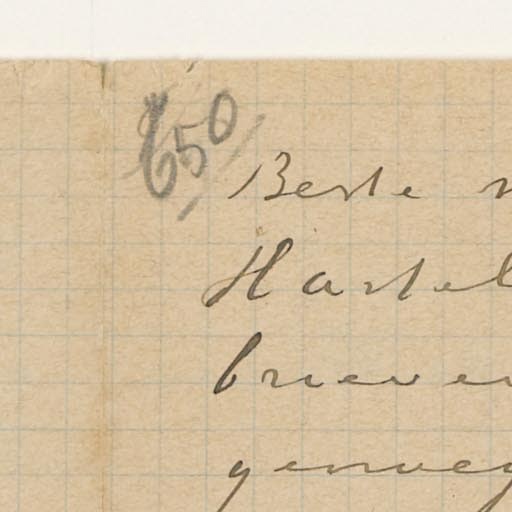 650
Beste
Hartel
brieven
genoeg